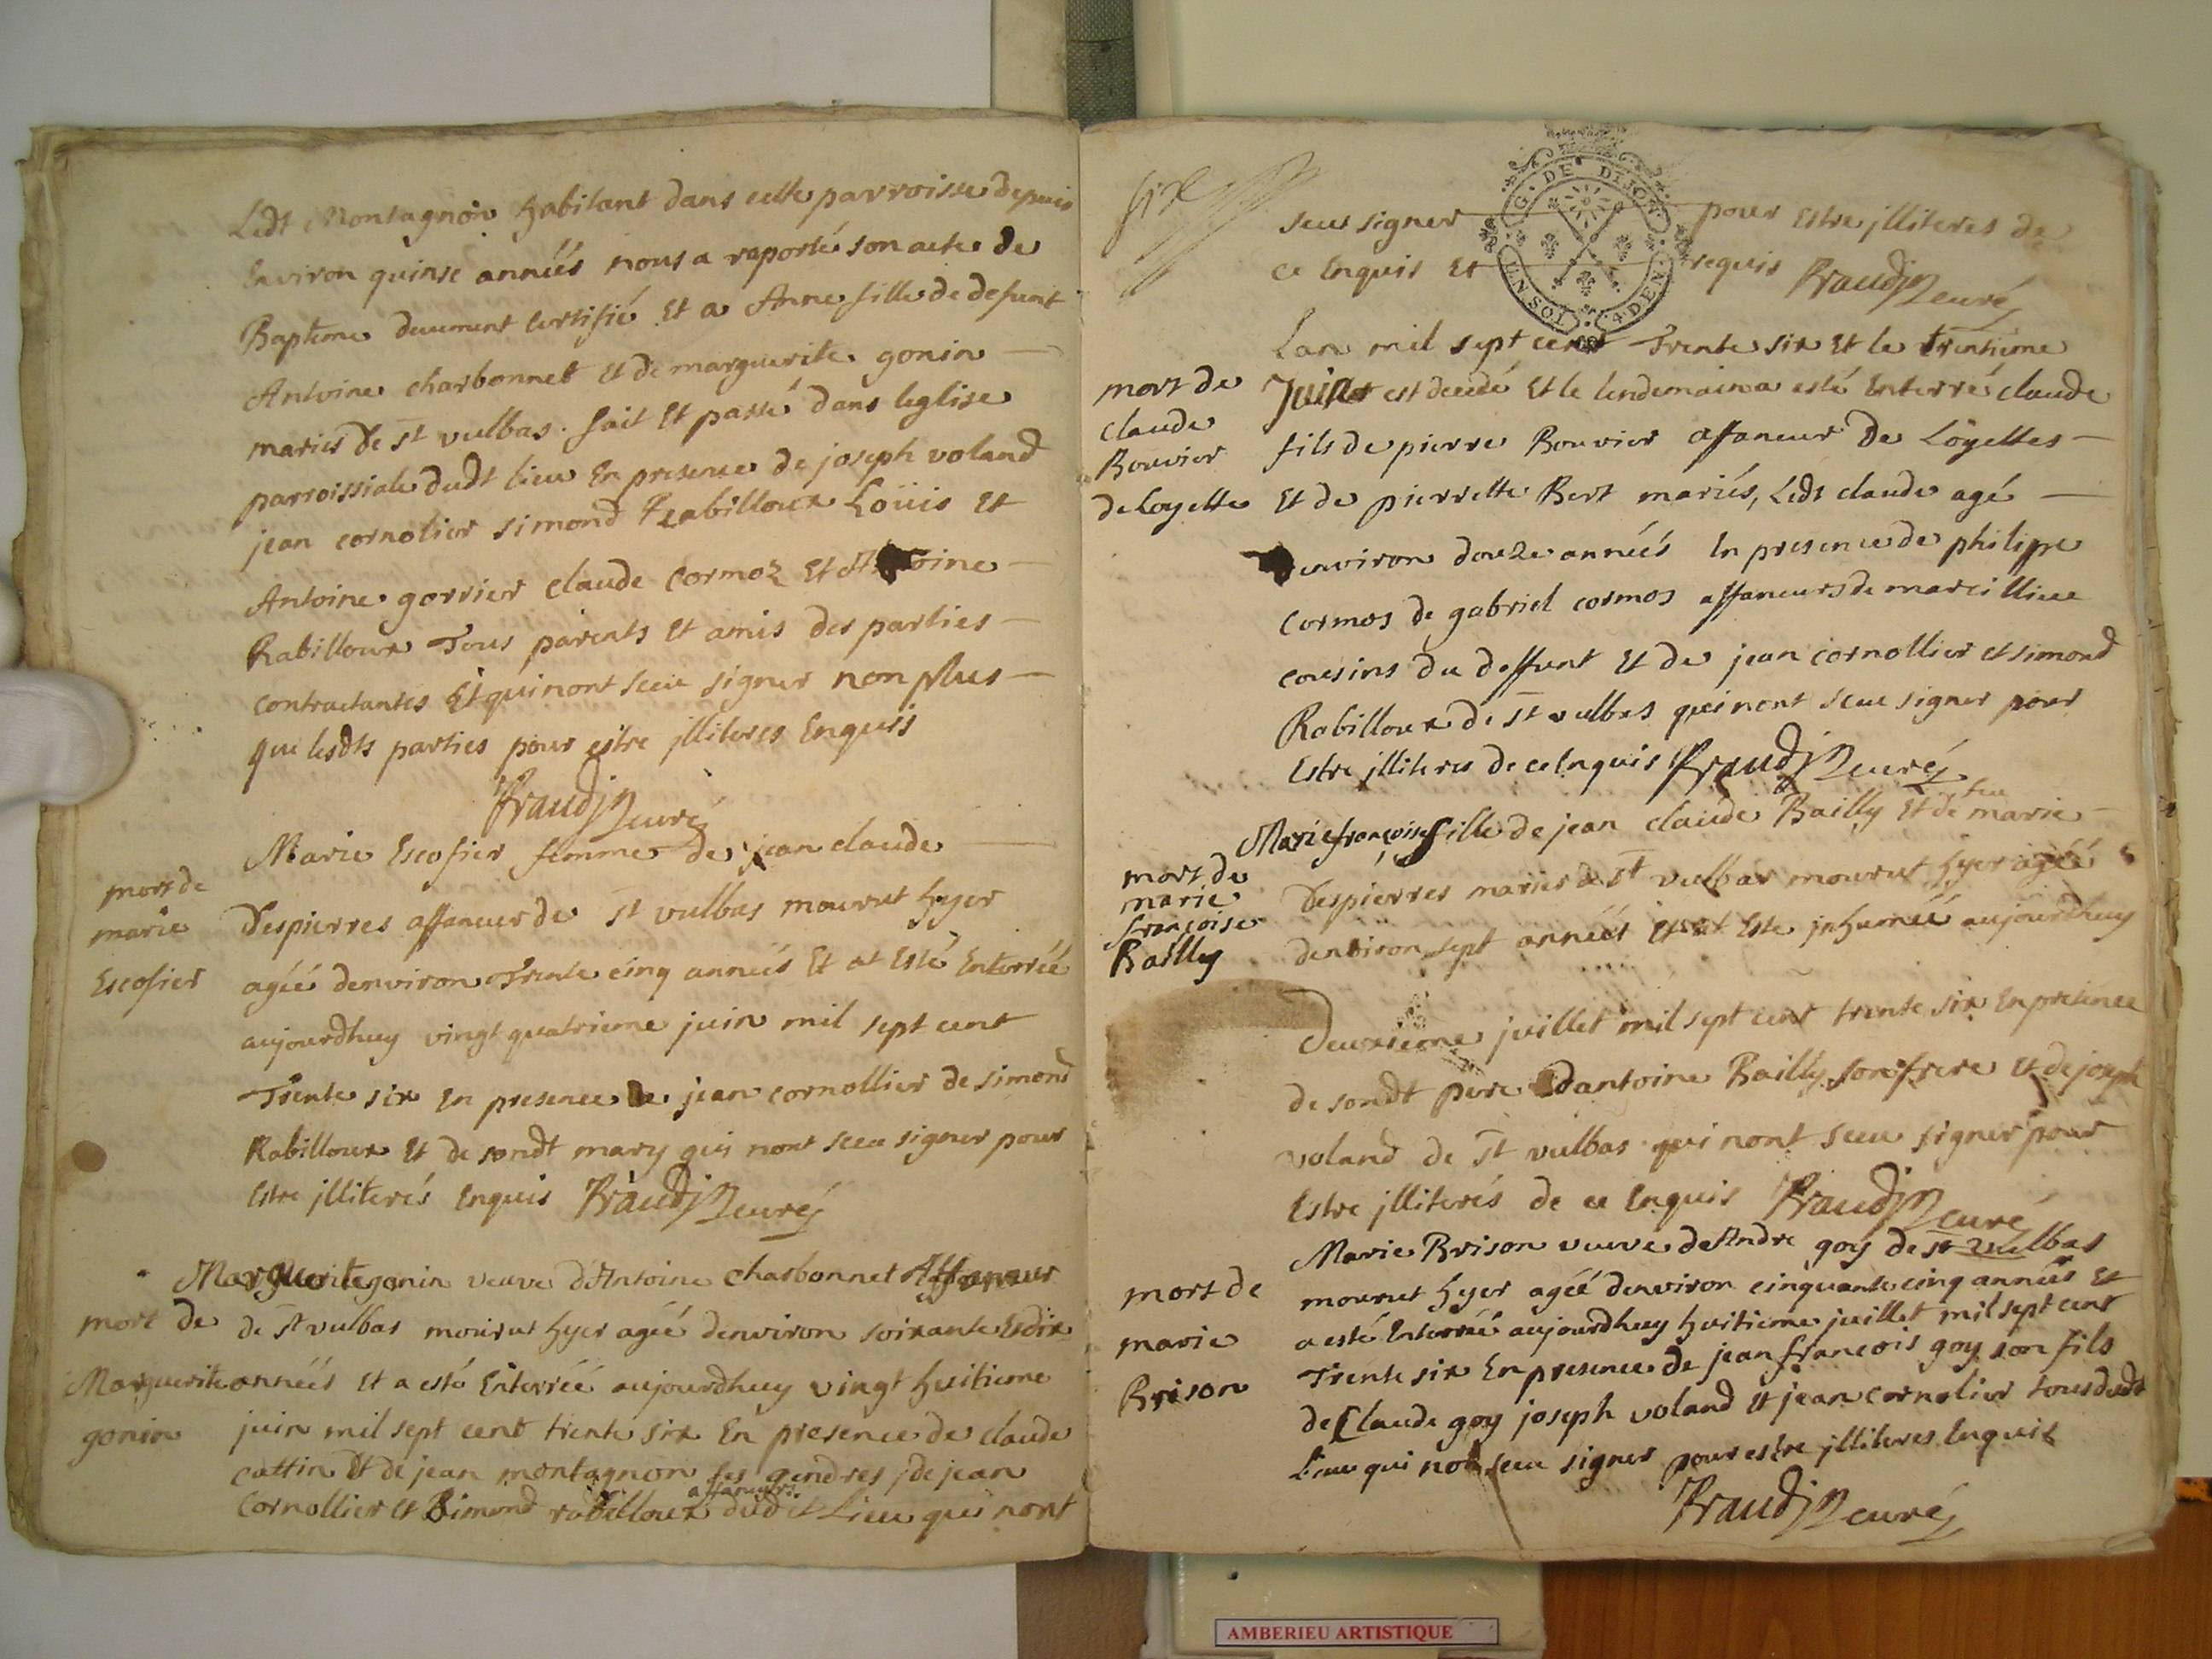 Ledt Montagnon habitant dans cette parroisse depuis
Environ quinse années nous a raporté son acte de
Bapteme duement certifié Et a Anne fille de defunt
Antoine charbonnet Et de marguerite gonin
mariés de st vulbas. fait Et passé dans leglise
parroissiale dudt lieu En presence de joseph voland
jean cornolier simond Rabilloux Loüis Et
Antoine gorrier claude Cormoz Et Antoine
Rabilloux Tous parents Et amis des parties
contractantes Et qui nont sceu signer non plus
que lesdts parties pour estre jlliteres Enquis
Fraudj curé
mort de
marie
Escofier
Marie Escofier femme de jean claude
Despierres affaneur de st vulbas mourut hyer
agéé denviron Trente cinq années Et at Esté Enterréé
aujourdhuy vingt quatrieme juin mil sept cent
Trente six En presence de jean cornollier de simond
Rabilloux Et de sondt mary qui nont sceu signer pour
Estre jlliterés Enquis Fraudj curé
mort de
Marguerite
gonin
Marguerite gonin veuve d'Antoine charbonnet Affaneur
de st vulbas mourut hyer agéé denviron soixante Et dix
annéés Et a esté Enterréé aujourdhuy vingt huitieme
juin mil sept cent trente six En presence de claude
cattin Et de jean montagnon ses gendres, de jean
affaneurs
Cornollier et Simond rabilloux dudit Lieu qui nont
sceu signer pour Estre jlliteres de
ce Enquis Et requis Fraudj curé
G. DE DIJON
UN SOL 4 DEN.
mort de
claude
Bouvier
de Loyette
Lan mil sept cent Trente six Et le trentieme
Juin est decedé Et le lendemain a esté Enterré claude
fils de pierre Bouvier affaneur de Loyettes
Et de pierrette Bert mariés, Ledt claude agé
denviron douze annéés En presence de philippe
Cormos de gabriel cormos affaneurs de marcillieu
cousins du deffunt Et de jean cornollier et simond
Rabilloux de st vulbas qui nont sceu signer pour
Estre jlliteres de ce Enquis Fraudj curé
mort de
marie
françoise
Bailly
feu
Marie françoise fille de jean claude Bailly Et de marie
Despierres mariés de st vulbas mourut hyer agéé
denviron sept annéés Et at Este jnhuméé aujourdhuy
Deuxieme juillet mil sept cent trente six En presence
de sondt pere Dantoine Bailly son frere Et de joseph
voland de st vulbas qui nont sceu signer pour
Estre jlliterés de ce Enquis Fraudj curé
mort de
marie
Brison
Marie Brison veuve de Andre goy de st vulbas
mourut hyer agéé denviron cinquante cinq annéés Et
a esté Enterréé aujourdhuy huitieme juillet mil sept cent
Trente six En presence de jean françois goy son fils
de Claude goy joseph voland Et jean cornolier tous dudt
Lieu qui not sceu signer pour estre jlliteres Enquis
Fraudj curé
AMBERIEU ARTISTIQUE